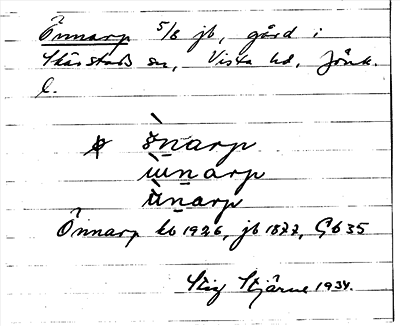 Önnarp 5/8 jb, gård i
Skärstads sn, Vista hd, Jönk.
l.
ònarp
ùnarp
ǜnarp
Önnarp kb 1926, jb 1877, Gb 35
Stig Stjärne 1934.